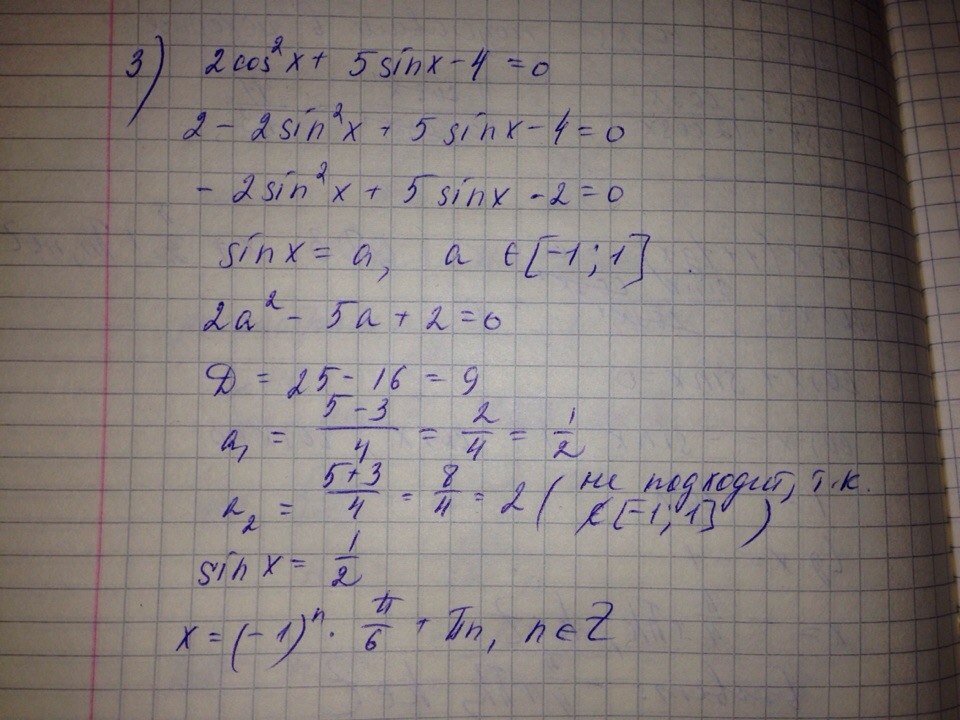 3) 2cos²x + 5sinx - 4 = 0
2 - 2sin²x + 5sinx - 4 = 0
- 2sin²x + 5sinx - 2 = 0
sinx = a, a ∈ [-1; 1].
2a² - 5a + 2 = 0
D = 25 - 16 = 9
a₁ = (5-3)/4 = 2/4 = 1/2
a₂ = (5+3)/4 = 8/4 = 2 ( не подходит, т.к.
∉ [-1; 1] )
sinx = 1/2
x = (-1)ⁿ · π/6 + πn, n ∈ Z